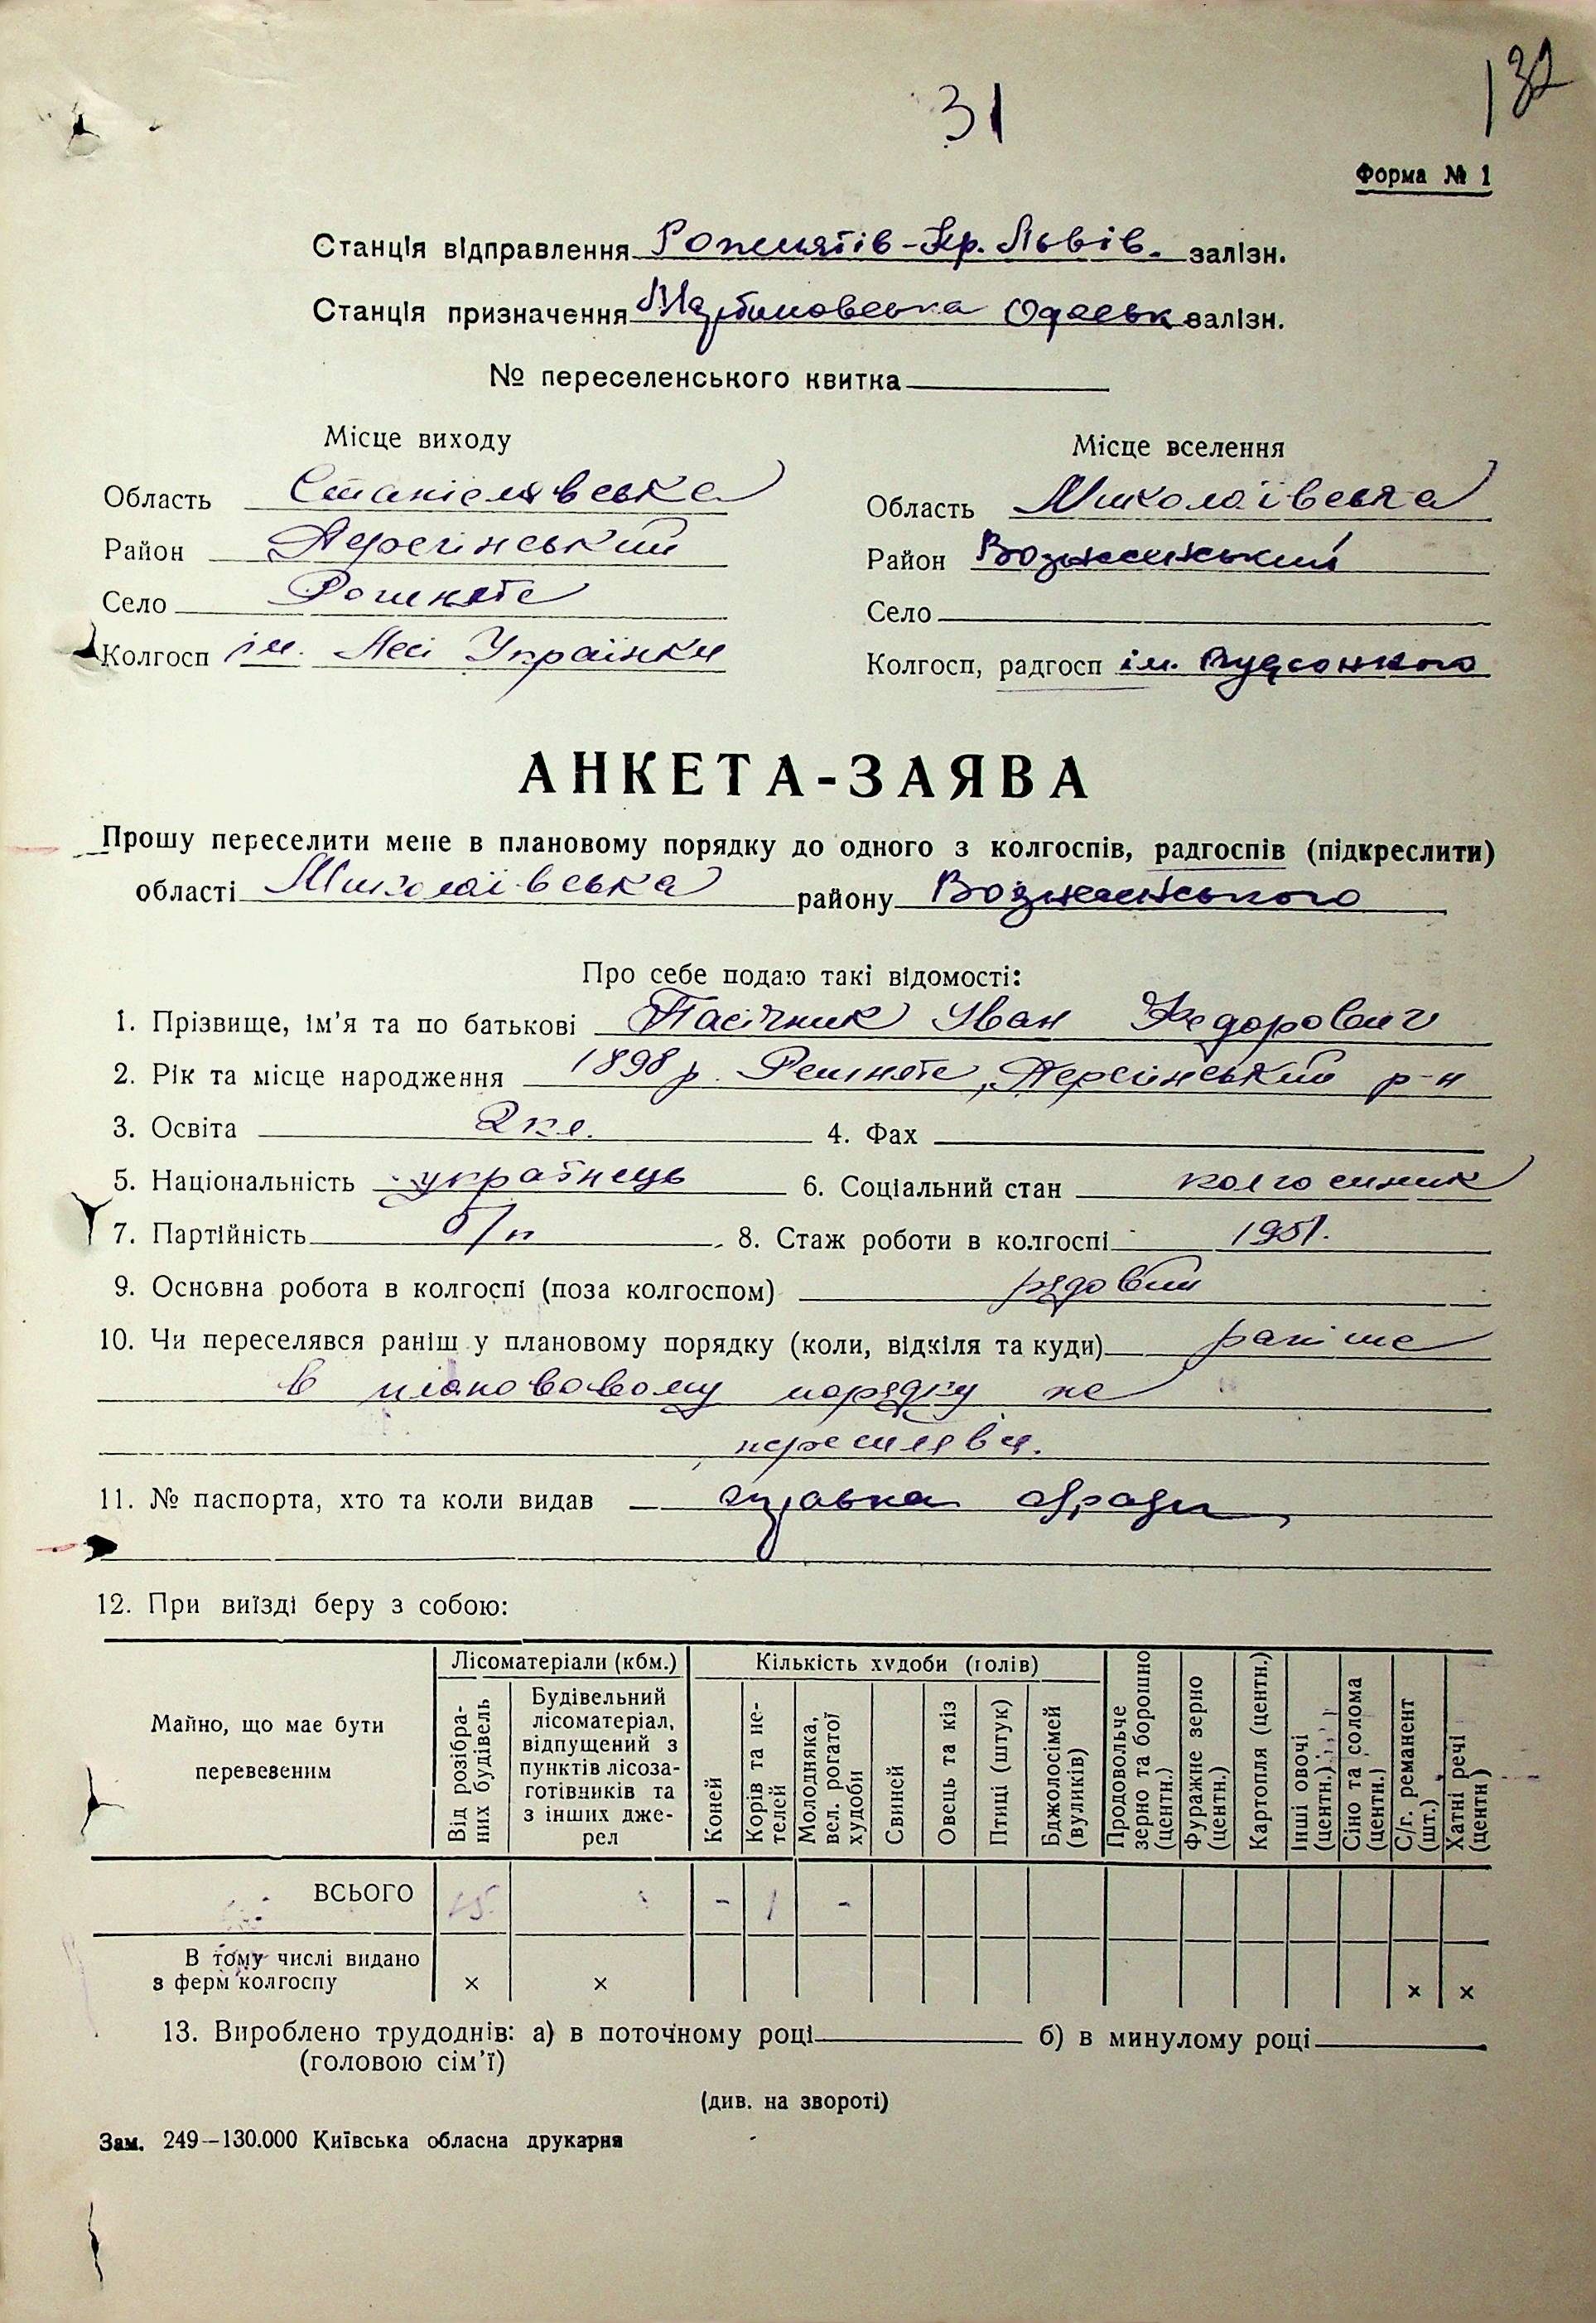 31
132
Форма № 1
Станція відправлення Рожнятів-Кр. Львів. залізн.
Станція призначення Одеськ залізн.
№ переселенського квитка
Місце виходу
Місце вселення
Область Станіславська
Область Миколаївська
Район Перегінський
Район
Село Рошняте
Село
Колгосп ім. Лесі Українки
Колгосп, радгосп ім.
АНКЕТА-ЗАЯВА
Прошу переселити мене в плановому порядку до одного з колгоспів, радгоспів (підкреслити)
області Миколаївська району
Про себе подаю такі відомості:
1. Прізвище, ім'я та по батькові Пасічник Іван Федорович
2. Рік та місце народження 1898 р. Рошняте, Перегінський р-н
3. Освіта 2 кл. 4. Фах
5. Національність українець 6. Соціальний стан колгоспник
7. Партійність б/п 8. Стаж роботи в колгоспі 1951.
9. Основна робота в колгоспі (поза колгоспом) рядовий
10. Чи переселявся раніш у плановому порядку (коли, відкіля та куди) раніше
в плановому порядку не
переселявся.
11. № паспорта, хто та коли видав
12. При виїзді беру з собою:
Майно, що має бути перевезеним
Лісоматеріали (кбм.)
Від розібраних будівель
Будівельний лісоматеріал, відпущений з пунктів лісозаготівників та з інших джерел
Кількість худоби (голів)
Коней
Корів та нетелей
Молодняка, вел. рогатої худоби
Свиней
Овець та кіз
Птиці (штук)
Бджолосімей (вуликів)
Продовольче зерно та борошно (центн.)
Фуражне зерно (центн.)
Картопля (центн.)
Інші овочі (центн.)
Сіно та солома (центн.)
С/г. реманент (шт.)
Хатні речі (центн)
ВСЬОГО 15 - 1 -
В тому числі видано з ферм колгоспу × × × ×
13. Вироблено трудоднів: а) в поточному році б) в минулому році
(головою сім'ї)
(див. на звороті)
Зам. 249—130.000 Київська обласна друкарня